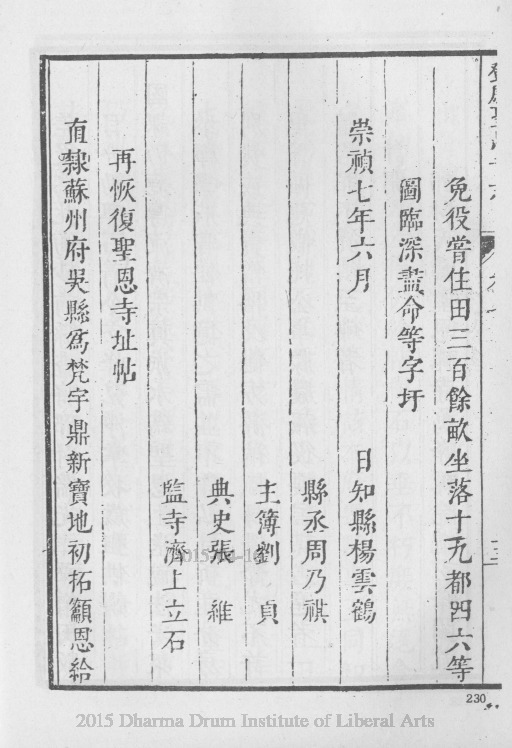 免役嘗住田三百餘畝坐落十九都四六等
圖臨深盡命等字圩
崇禎七年六月 日知縣楊雲鶴
縣丞周乃祺
主簿劉貞
典史張維
監寺濟上立石
再恢復聖恩寺址帖
直隸蘇州府吳縣爲梵宇鼎新寶地初拓籲恩給
230
2015 Dharma Drum Institute of Liberal Arts